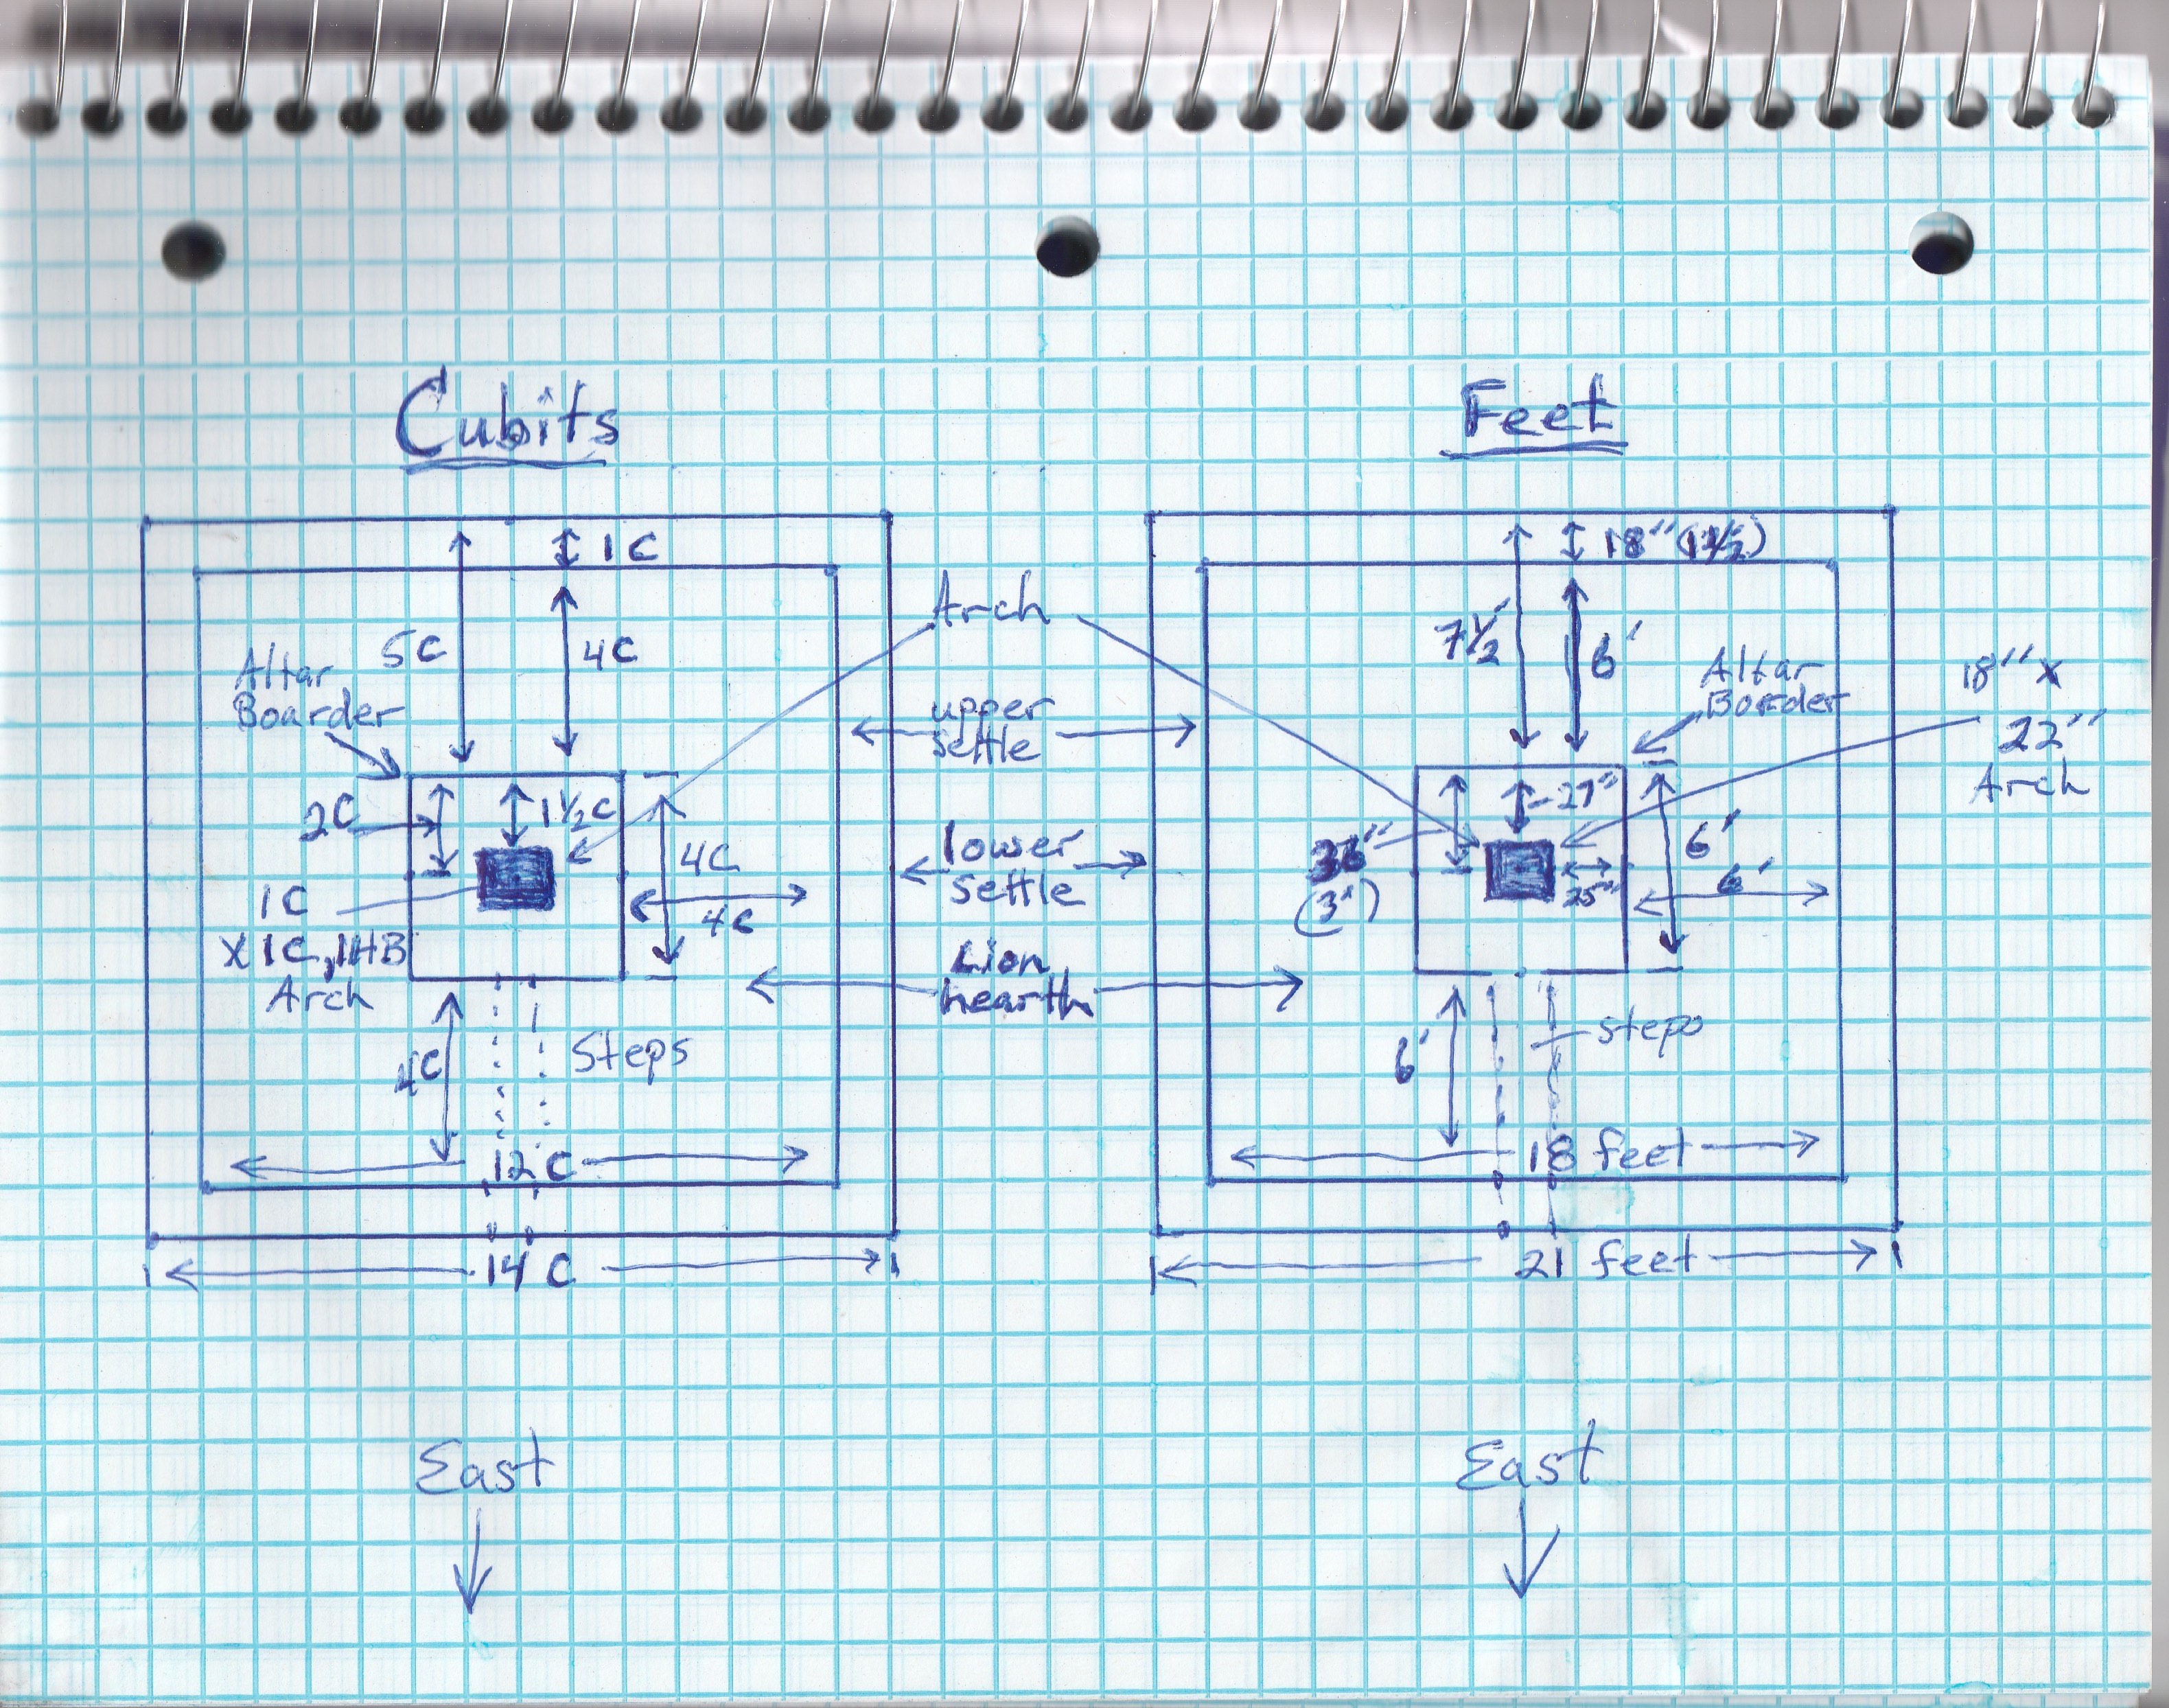 Cubits
Feet
1C
18" (1½)
Arch
5C
4C
7½'
6'
Altar
Boarder
Altar
Boarder
18" x
22"
Arch
upper
settle
2C
1½C
27"
4C
lower
settle
36"
(3')
6'
6'
25"
4C
1C
X 1C, 1HB
Arch
Lion
hearth
4C
Steps
6'
steps
12 C
18 feet
14 C
21 feet
East
East